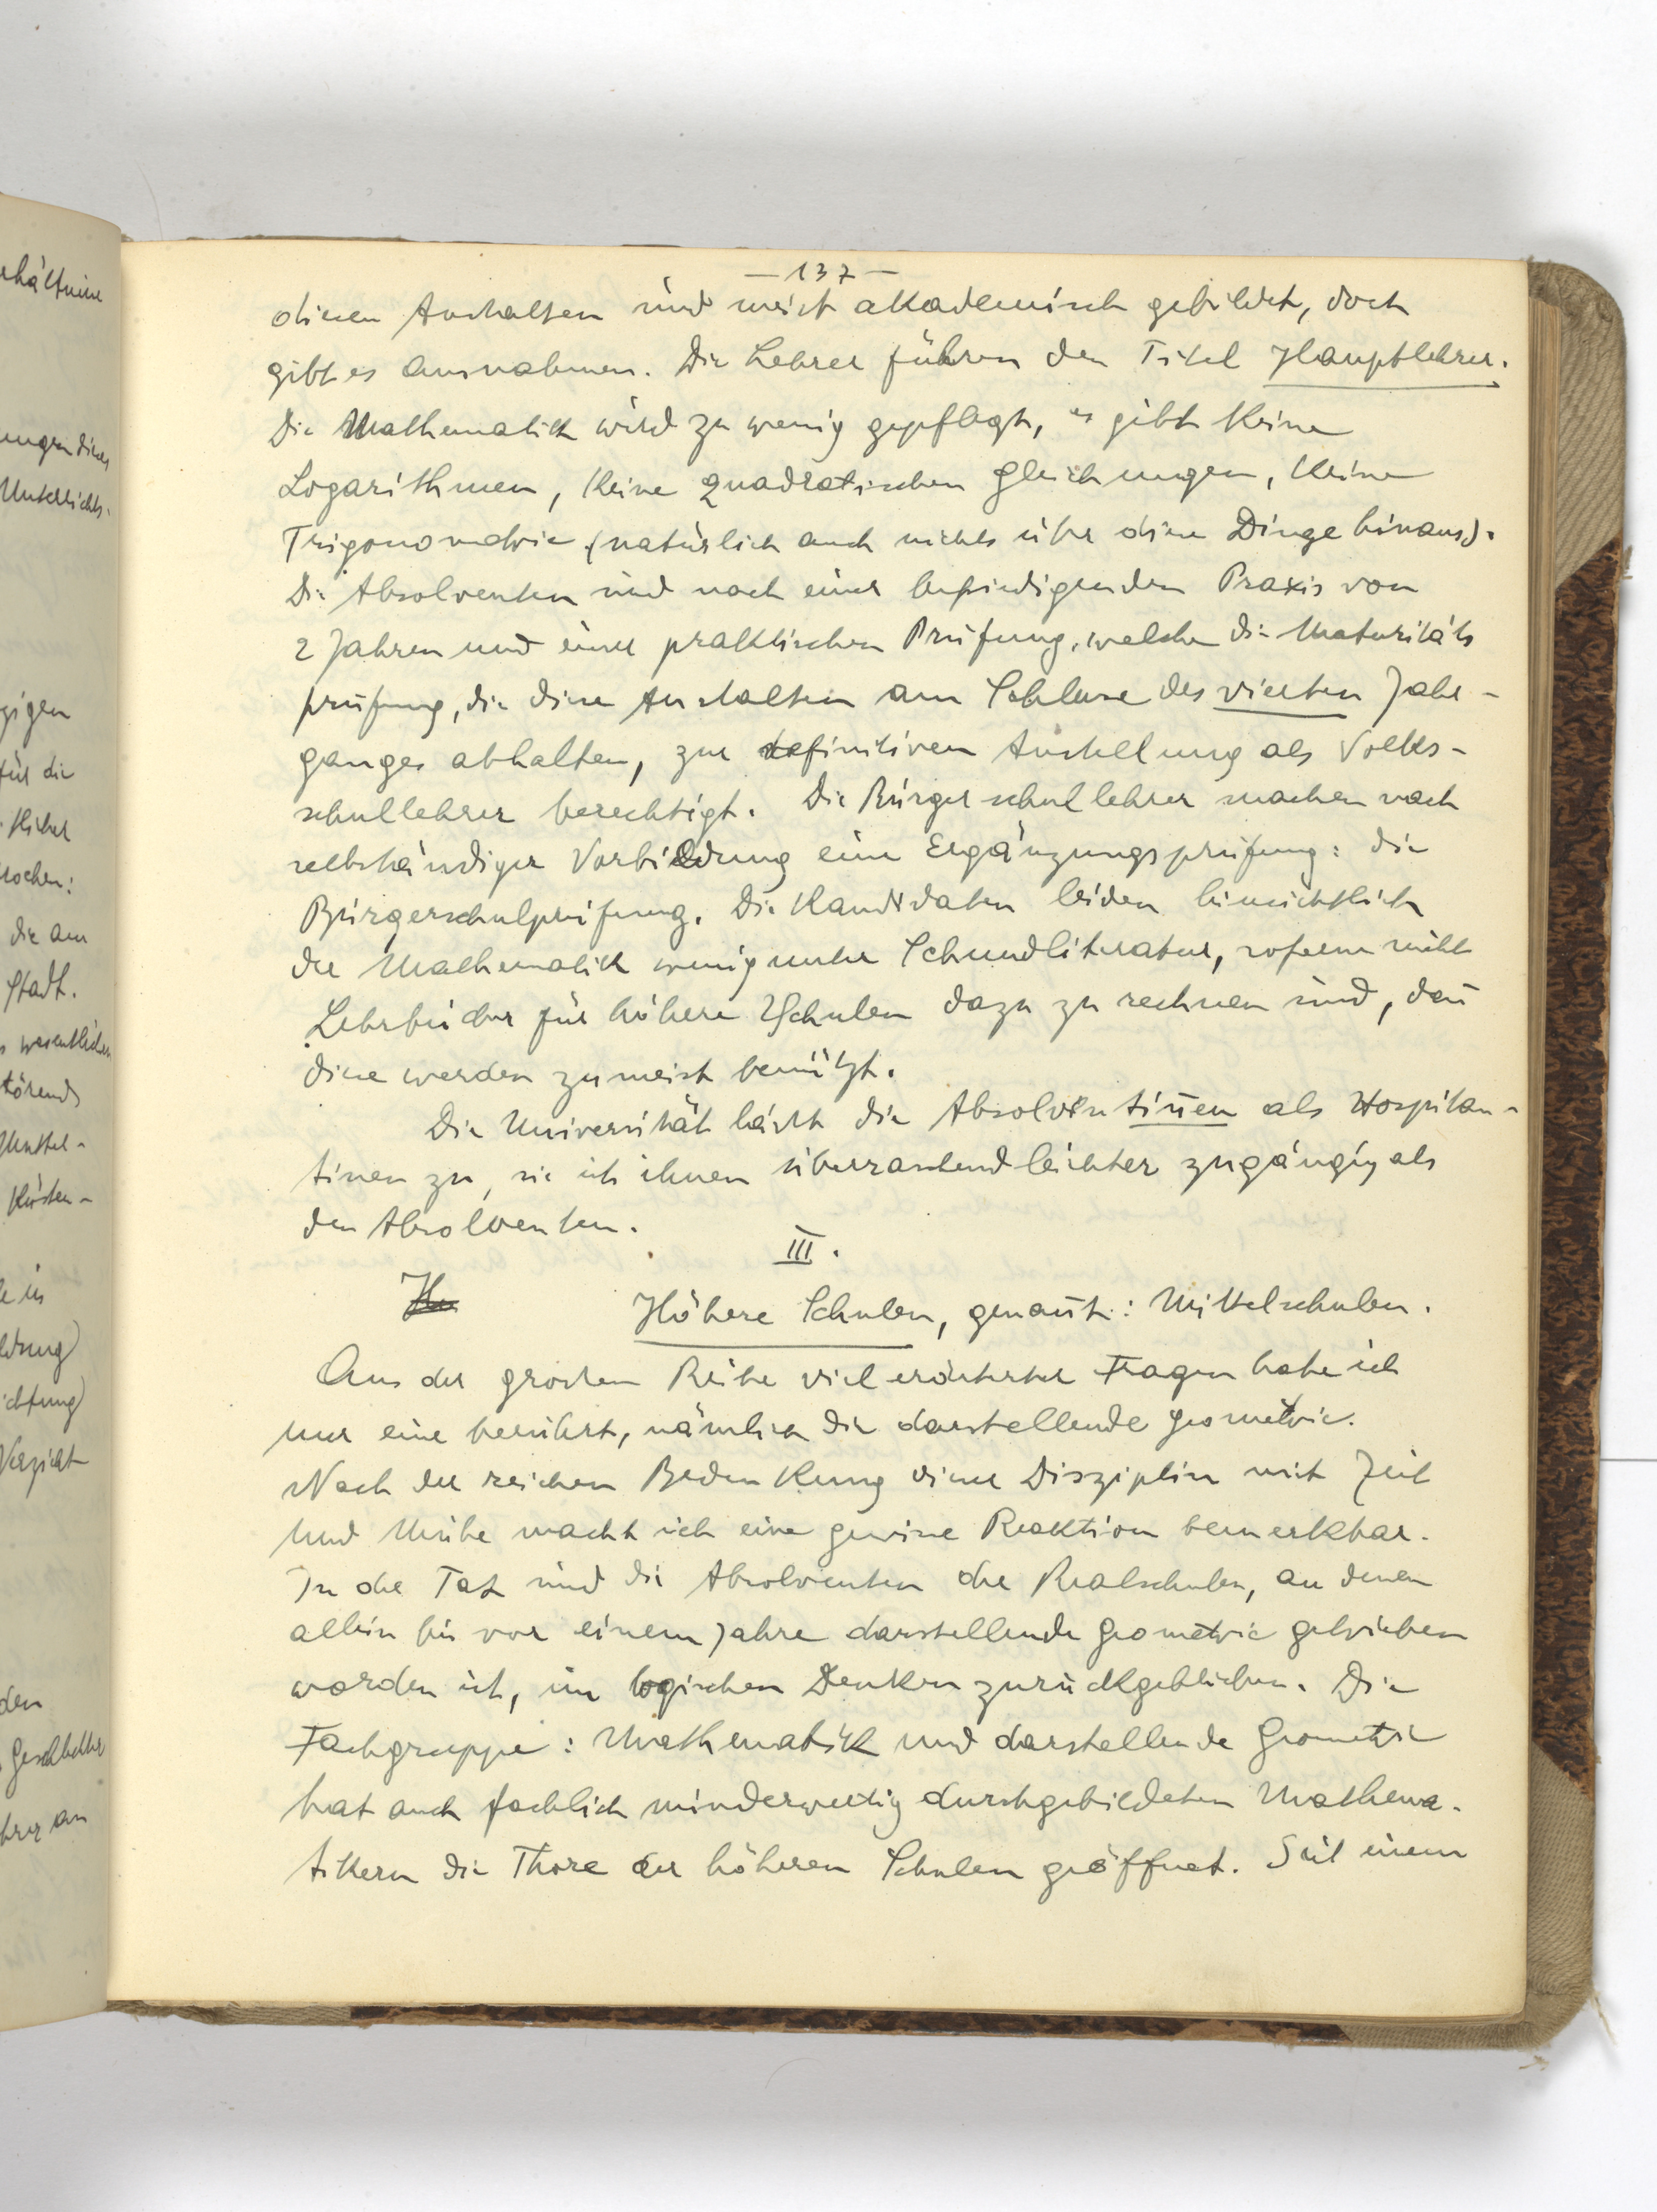 — 137 —
diesen Anstalten sind meist akademisch gebildet, doch
gibt es Ausnahmen. Die Lehrer führen den Titel Hauptlehrer.
Die Mathematik wird zu wenig gepflegt, es gibt keine
Logarithmen, keine quadratischen Gleichungen, keine
Trigonometrie (natürlich auch nichts über diese Dinge hinaus).
Die Absolventen sind nach einer befriedigenden Praxis von
2 Jahren und einer praktischen Prüfung, welche die Maturitäts
prüfung, die diese Anstalten am Schlusse des vierten Jahr-
ganges abhalten, zur definitiven Anstellung als Volks-
schullehrer berechtigt. Die Bürgerschullehrer machen nach
selbständiger Vorbildung eine Ergänzungsprüfung: die
Bürgerschulprüfung. Die Kandidaten leiden hinsichtlich
der Mathematik wenig unter Schundliteratur, soferne nicht
Lehrbücher für höhere Schulen dazu zu rechnen sind, den̄
diese werden zumeist benützt.
Die Universität lässt die Absolventin̄en als Hospitan-
tinen zu, sie ist ihnen überraschend leichter zugängig als
den Absolventen.
III.
Höhere Schulen, genan̄t: Mittelschulen.
Aus der grossen Reihe viel erörterter Fragen habe ich
nur eine berührt, nämlich die darstellende Geometrie.
Nach der reichen Bedenkung dieser Disziplin mit Zeit
und Mühe macht sich eine gewisse Reaktion bemerkbar.
In der Tat sind die Absolventen der Realschulen, an denen
allein bis vor einem Jahre darstellende Geometrie getrieben
worden ist, im logischen Denken zurückgeblieben. Die
Fachgruppe: Mathematik und darstellende Geometrie
hat auch fachlich minderwertig durchgebildeten Mathema-
tikern die Thore der höheren Schulen geöffnet. Seit einem
ungen dieses
Unterrichts-
für die
die am
Stadt.
wesentlichen
Mittel-
Küsten-
Verzicht
den